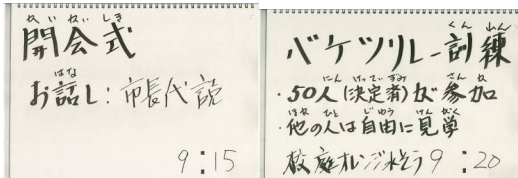 開会式
はな
お話し：市長代読
9:15
くん れん
バケツリレー訓練
にん けっていずみ さん か
・50人(決定済)が参加
ほか ひと じゆう けんがく
・他の人は自由に見学
校庭オレンジ水そう 9:20